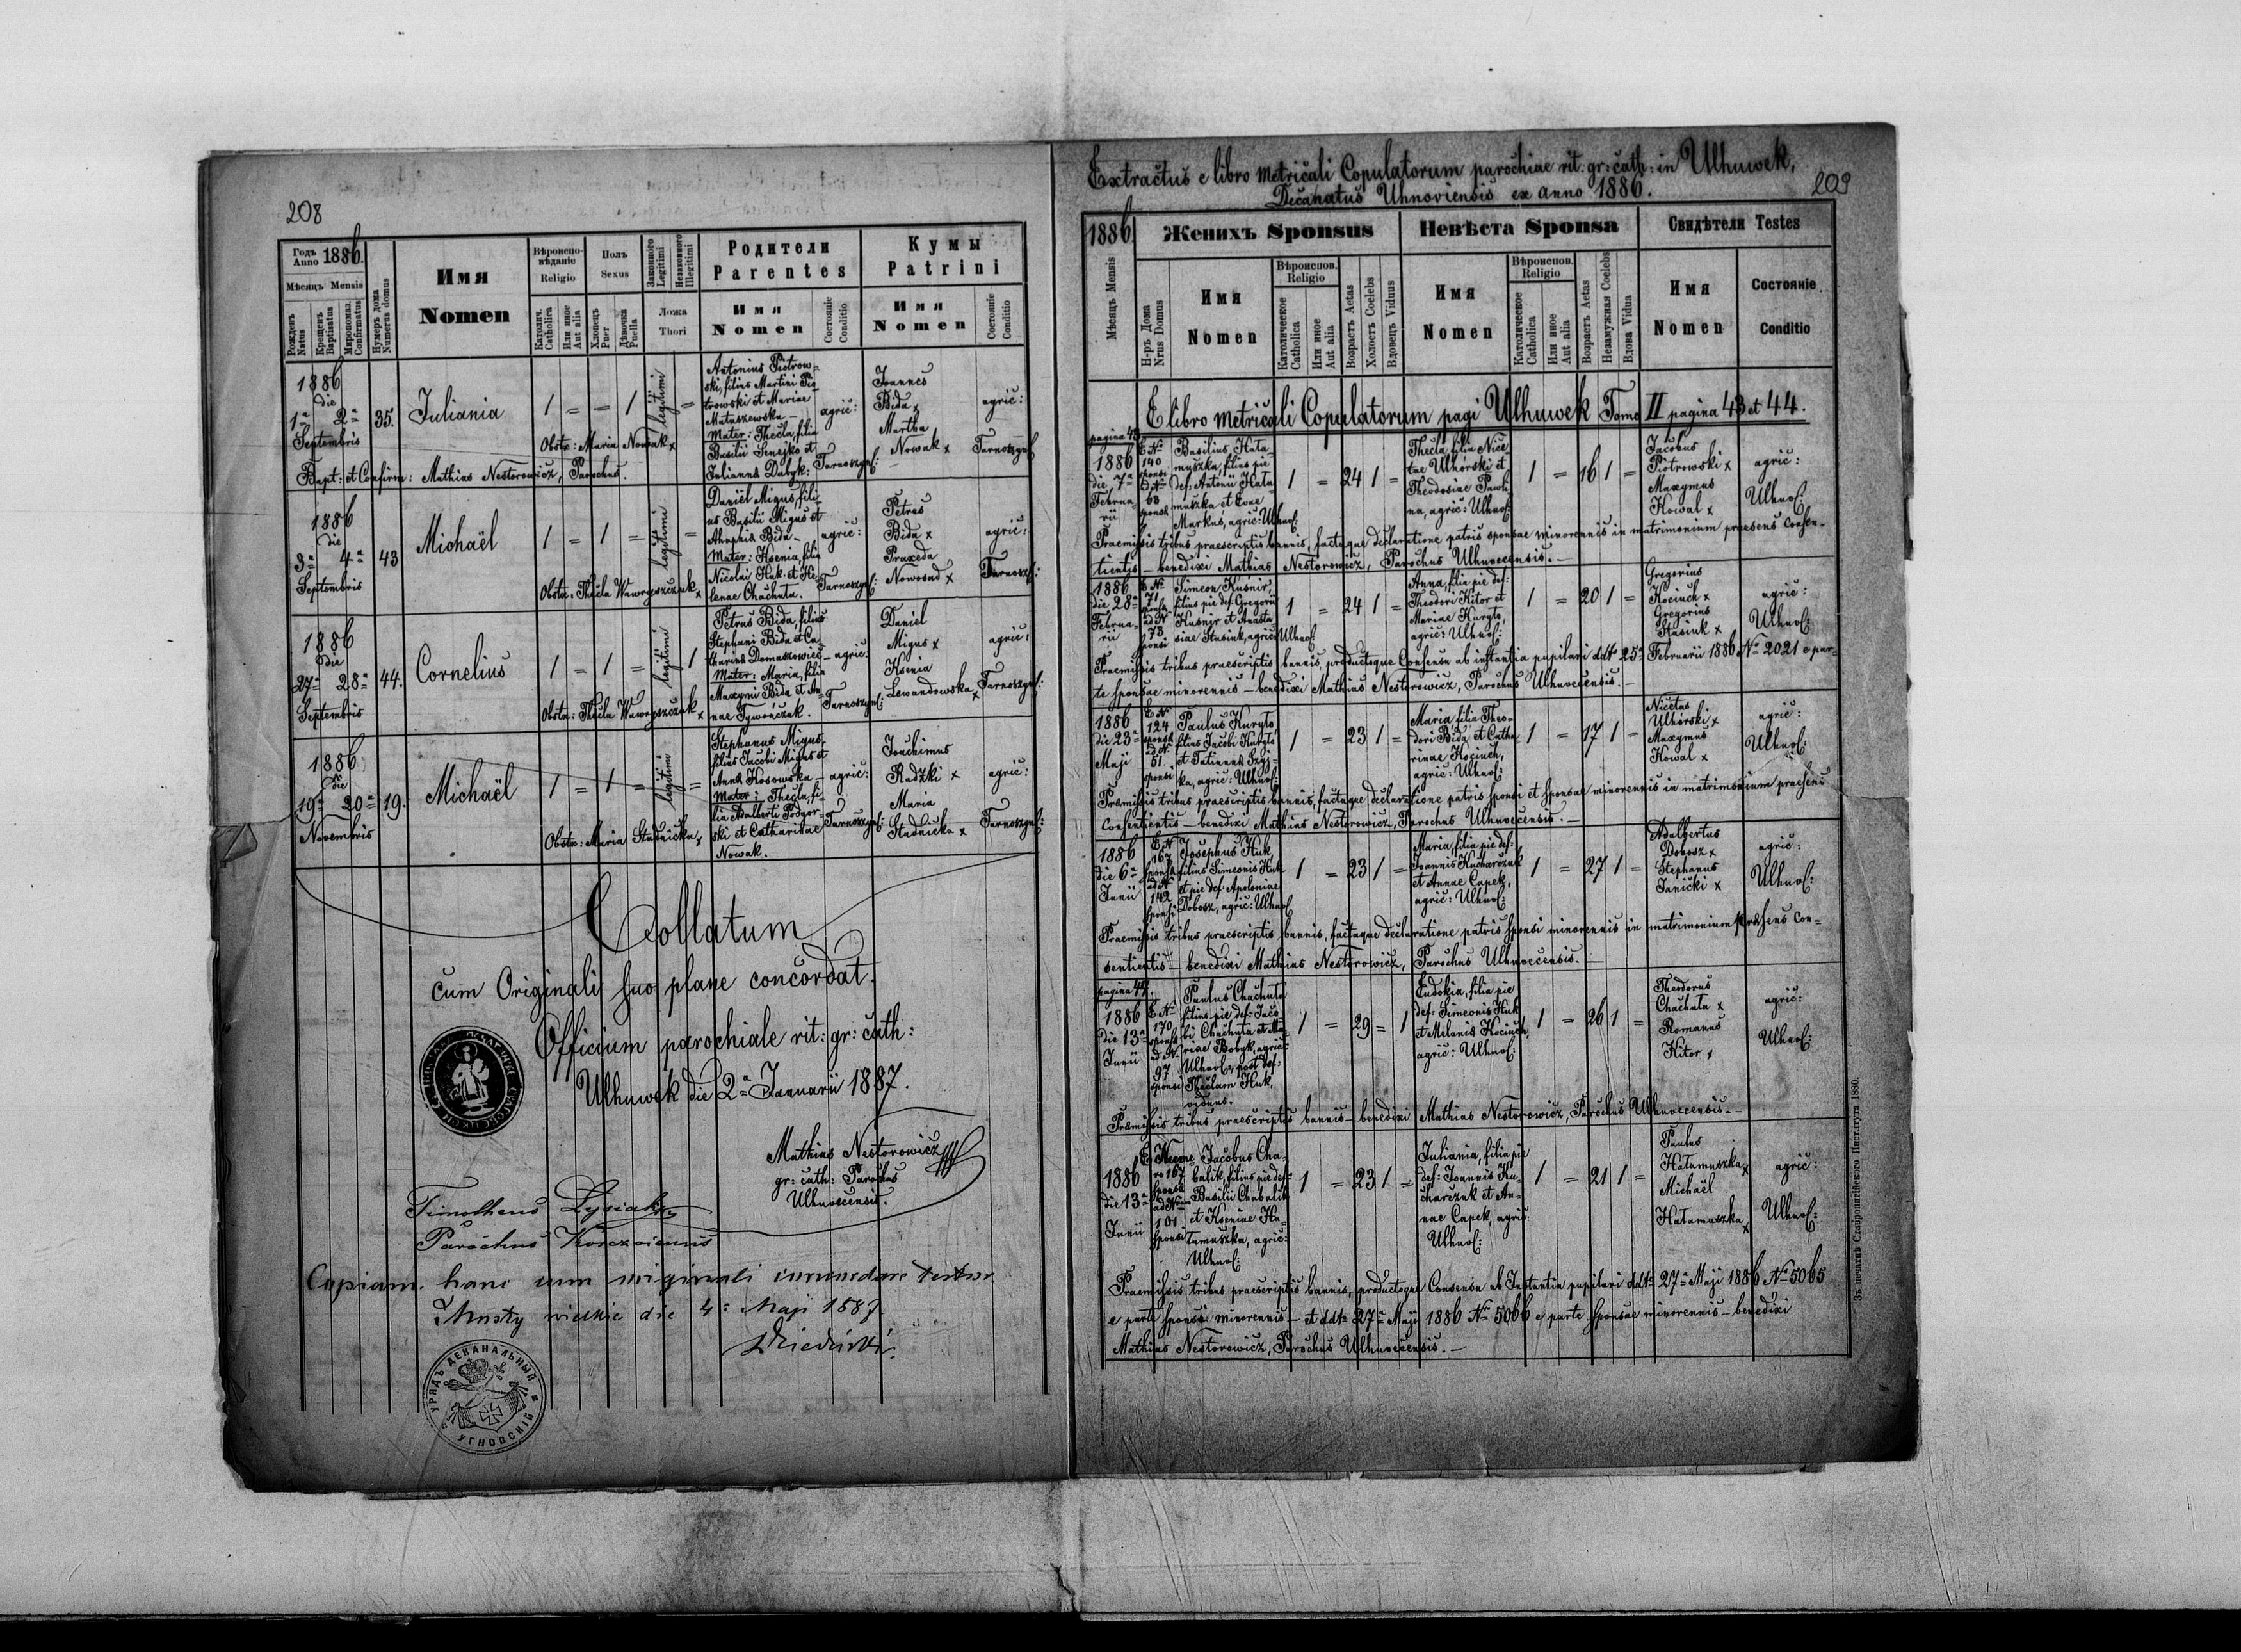 208
Годъ Anno 1886.
Мѣсяцъ Mensis
Рожденъ Natus
Крещенъ Baptisatus
Миропомаз. Confirmatus
Нумеръ дома Numerus domus
Имя Nomen
Вѣроиспо-вѣданіе Religio
Католич. Catholica
Или иное Aut alia
Полъ Sexus
Хлопецъ Puer
Дѣвочка Puella
Законного Legitimi
Незаконного Illegitimi
Ложа Thori
Родители Parentes
Имя Nomen
Состояніе Conditio
Кумы Patrini
Имя Nomen
Состояніе Conditio
1886
die
1ª 2ª
Septembris
35.
Juliania
1 = = 1 legitimi =
Antonius Piotrow=
ski, filius Martini Pio
trowski et Mariae
Matuszewska —
Mater: Thecla, filia
Basilii Senejko et
Julianna Dabyk:
agric:
Turnoszyn:
Joannes
Bida x
Martha
Nowak x
agric:
Turnoszyn:
Obstr: Maria Nowak x
Bapt: et Confirm: Mathias Nestorowicz, Parochus.
1886
die
3ª 4ª
Septembris
43
Michaël
1 = 1 = legitimi =
Daniel Migus, fili
us Basilii Migus et
Ahaphia Bida —
Mater: Hsenia, filia
Nicolai Huk et He
lenae Chachuta.
agric:
Turnoszyn:
Petrus
Bida x
Praxeda
Nowosad x
agric:
Turnosz:
Obstr: Thecla Wawryszczuk x
1886
die
27ª 28ª
Septembris
44.
Cornelius
1 = 1 = legitimi 1
Petrus Bida, filius
Stephani Bida et Ca
tharina Domaszowiec
Mater: Maria, filia
Maxymi Bida et An
nae Tywończuk.
agric.
Turnoszyn:
Daniel
Migus x
Ksenia
Lewandowska x
agric:
Turnoszyn:
Obstr: Thecla Wawryszczuk x
1886
die
19ª 20ª
Novembris
19.
Michaël
1 = 1 = legitimi =
Stephanus Migus,
filius Jacobi Migus et
Anna Kosowska —
Mater: Thecla, fi
lia Adalberti Podgor
ski et Catharinae
Nowak.
agric:
Turnoszyn:
Joachimus
Radzki x
Maria
Stadnicka x
agric:
Turnoszyn:
Obstr: Maria Stadnicka x
Collatum
cum Originali suo plane concordat.
Officium parochiale rit: gr: cath:
Ulhuwek die 2ª Januarii 1887.
Mathias Nestorowicz
gr: cath: Parochus
Ulhuvecensis.
Timotheus Lysiak
Parochus Korczoviensis
Copiam hanc cum originali
Mosty wielkie die 4ª Maji 1887
УРЯДЪ ДЕКАНАЛЬНЫЙ
УГНОВСКІЙ
Extractus e libro Metricali Copulatorum parochiae rit: gr: cath: in Ulhuwek,
Decanatus Uhnoviensis ex anno 1886.
209
1886.
Женихъ Sponsus
Невѣста Sponsa
Свидѣтели Testes
Мѣсяцъ Mensis
Н-ръ Дома Nrus Domus
Имя Nomen
Вѣроиспов. Religio
Католическое Catholica
Или иное Aut alia
Возрастъ Aetas
Холостъ Coelebs
Вдовецъ Viduus
Имя Nomen
Вѣроиспов. Religio
Католическое Catholica
Или иное Aut alia
Возрастъ Aetas
Незамужная Coelebs
Вдова Vidua
Имя Nomen
Состояніе Conditio
E libro metricali Copulatorum pagi Ulhuwek Tomo II pagina 43 et 44.
pagina 43
1886
die 7ª
Februa
rii
E Nº
140
sponsi
ad Nº
63
sponsa
Basilius Hata
muszka, filius pie
def: Antonii Hata
muszka et Evae
Markus, agric: Ulhuv:
1 = 24 1 =
Thecla, filia Nice
tae Ulhórski et
Theodosiae Pawli
na, agric: Ulhuv:
1 = 16 1 =
Jacobus
Piotrowski x
Maxymus
Kowal x
agric:
Ulhuv:
Praemissis tribus praescriptis bannis, factaque declaratione patris sponsae minorennis in matrimonium praesens consen=
tientis — benedixi Mathias Nestorowicz, Parochus Ulhuvecensis. —
1886
die 28ª
Februa=
rii
E Nº
71
sponsa
ad N
73
sponsi
Simeon Kusnir,
filius pie def: Gregorii
Kusnir et Anasta
siae Stasiuk, agric: Ulhuv:
1 = 24 1 =
Anna, filia pie def:
Theodori Kitor et
Mariae Kuryto,
agric: Ulhuv:
1 = 20 1 =
Gregorius
Kociuch x
Gregorius
Stasiuk x
agric:
Ulhuv:
Praemissis tribus praescriptis bannis, productoque Consensu ab instantia pupilari ddtº 25ª Februarii 1886 Nº 2021 e par=
te sponsae minorennis — benedixi Mathias Nestorowicz, Parochus Ulhuvecensis. —
1886
die 23ª
Maji
E N
124
sponsa
ad N
51
sponsi
Paulus Kuryto,
filius Jacobi Kuryto
et Tatianna Szyj=
ka, agric: Ulhuv:
1 = 23 1 =
Maria, filia Theo=
dori Bida et Catha
rinae Kociuch,
agric: Ulhuv:
1 = 17 1 =
Nicetas
Ulhórski x
Maxymus
Kowal x
agric:
Ulhuv:
Praemissis tribus praescriptis bannis, factaque declaratione patris sponsi et sponsae minorennis in matrimonium praesens
Consentientis — benedixi Mathias Nestorowicz, Parochus Ulhuvecensis. —
1886
die 6ª
Junii
E N
167
sponsa
ad N
142
sponsi
Josephus Huk
filius Simeonis Huk
et pie def: Apoloniae
Dobosz, agric: Ulhuv:
1 = 23 1 =
Maria, filia pie def:
Joannis Kucharczuk
et Annae Capek,
agric: Ulhuv:
1 = 27 1 =
Adalbertus
Dobosz x
Stephanus
Janicki x
agric:
Ulhuv:
Praemissis tribus praescriptis bannis, factaque declaratione patris sponsi minorennis in matrimonium praesens con=
sentientis — benedixi Mathias Nestorowicz, Parochus Ulhuvecensis. —
pagina 44.
1886
die 13ª
Junii
E Nº
170
sponsa
ad N
97
sponsi
Paulus Chachuta
filius pie def: Jaco
bi Chachuta et Ma
riae Bobyk, agric:
Ulhuv: post def:
Theclam Huk,
viduus.
1 = 29 = 1
Eudokia, filia pie
def: Simeonis Huk
et Melanis Kociuch,
agric: Ulhuv:
1 = 26 1 =
Theodorus
Chachuta x
Romanus
Kitor x
agric:
Ulhuv:
Praemissis tribus praescriptis bannis — benedixi Mathias Nestorowicz, Parochus Ulhuvecensis. —
1886
die 13ª
Junii
E Nume
ro 167
sponsa
ad Nrum
101
sponsi
Jacobus Cha=
balik, filius pie def:
Basilii Chabalik
et Kseniae Ha=
tamuszka, agric:
Ulhuv:
1 = 23 1 =
Juliania, filia pie
def: Joannis Ku=
charczuk et An=
nae Capek, agric:
Ulhuv:
1 = 21 1 =
Paulus
Hatamuszka x
Michaël
Hatamuszka x
agric:
Ulhuv:
Praemissis tribus praescriptis bannis, productoque Consensu ab Instantia pupilari ddtº 27ª Maji 1886 Nº 5065
e parte sponsi minorennis — et ddtº 27ª Maji 1886 Nº 5066 e parte sponsae minorennis — benedixi
Mathias Nestorowicz, Parochus Ulhuvecensis. —
Зъ печатнѣ Ставропигійского Института 1880.